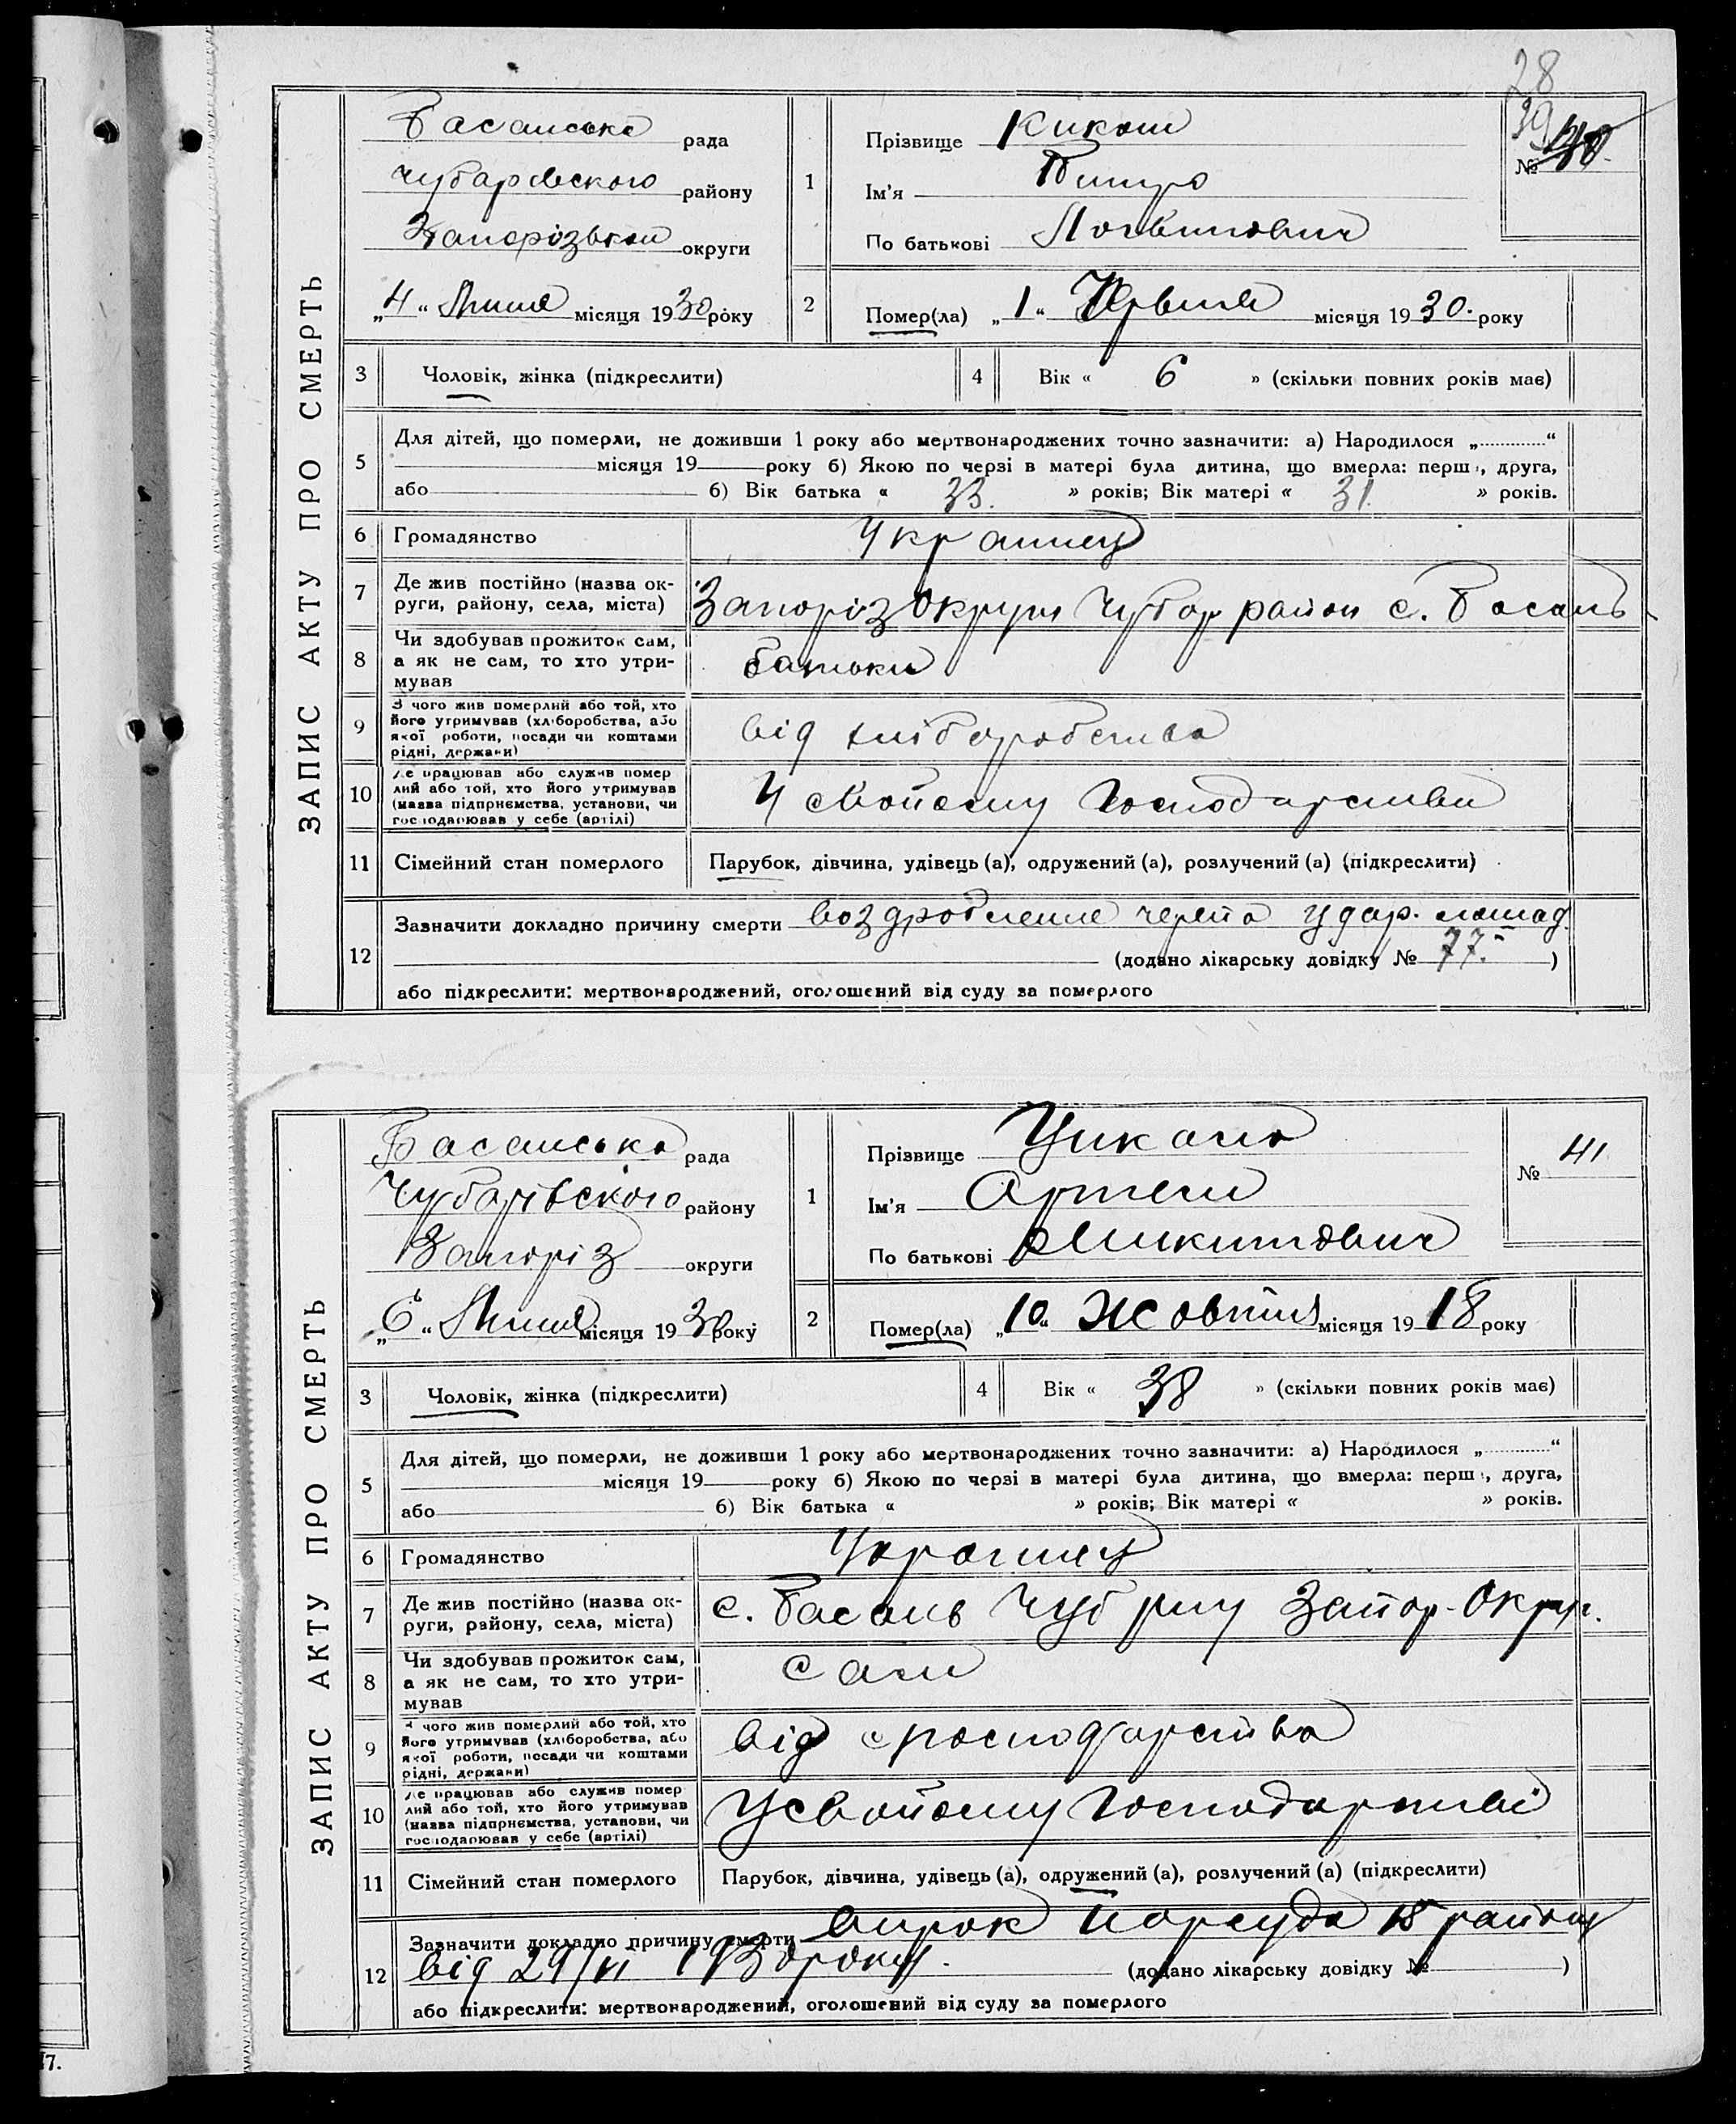 28
39
ЗАПИС АКТУ ПРО СМЕРТЬ
Басанська рада
Чубарівского району
Запорізькой округи
„4“ Липня місяця 1930 року
1
Прізвище Кикот
Ім'я
По батькові Логвинович
№ 40
2
Помер(ла) „1“ Червня місяця 1930. року
3 Чоловік, жінка (підкреслити)
4 Вік « 6 » (скільки повних років має)
5 Для дітей, що померли, не доживши 1 року або мертвонароджених точно зазначити: а) Народилося „ “
місяця 19 року б) Якою по черзі в матері була дитина, що вмерла: перш , друга,
або б) Вік батька « 33. » років; Вік матері « 31. » років.
6 Громадянство Украинец
7 Де жив постійно (назва ок-
руги, району, села, міста) Запоріз Округи Чубар район с. Басань
8 Чи здобував прожиток сам,
а як не сам, то хто утри-
мував батьки
9 З чого жив померлий або той, хто
його утримував (хліборобства, або
якої роботи, посади чи коштами
рідні, держави) від хліборобства
10 Де працював або служив помер
лий або той, хто його утримував
(назва підприємства, установи, чи
господарював у себе (артілі) У свойому Господарстви
11 Сімейний стан померлого Парубок, дівчина, удівець (а), одружений (а), розлучений (а) (підкреслити)
12 Зазначити докладно причину смерти воздробление черепа удар. лошад.
(додано лікарську довідку № 77. )
або підкреслити: мертвонароджений, оголошений від суду за померлого
ЗАПИС АКТУ ПРО СМЕРТЬ
Басанська рада
Чубарівского району
Запоріз округи
„6“ Липня місяця 1930 року
1
Прізвище Цикало
Ім'я Артем
По батькові Микитович
№ 41
2
Помер(ла) „10“ Жовтня місяця 1918 року
3 Чоловік, жінка (підкреслити)
4 Вік « 38 » (скільки повних років має)
5 Для дітей, що померли, не доживши 1 року або мертвонароджених точно зазначити: а) Народилося „ “
місяця 19 року б) Якою по черзі в матері була дитина, що вмерла: перш , друга,
або б) Вік батька « » років; Вік матері « » років.
6 Громадянство Украинец
7 Де жив постійно (назва ок-
руги, району, села, міста) с. Басань Чуб р-ну Запор-Округ.
8 Чи здобував прожиток сам,
а як не сам, то хто утри-
мував сам
9 З чого жив померлий або той, хто
його утримував (хліборобства, або
якої роботи, посади чи коштами
рідні, держави) від господарства
10 Де працював або служив помер
лий або той, хто його утримував
(назва підприємства, установи, чи
господарював у себе (артілі) У свойому Господарстві
11 Сімейний стан померлого Парубок, дівчина, удівець (а), одружений (а), розлучений (а) (підкреслити)
12 Зазначити докладно причину смерти вирок Нарсуда 18 району
від 29/VI 1930 року.
(додано лікарську довідку № )
або підкреслити: мертвонароджений, оголошений від суду за померлого
17.